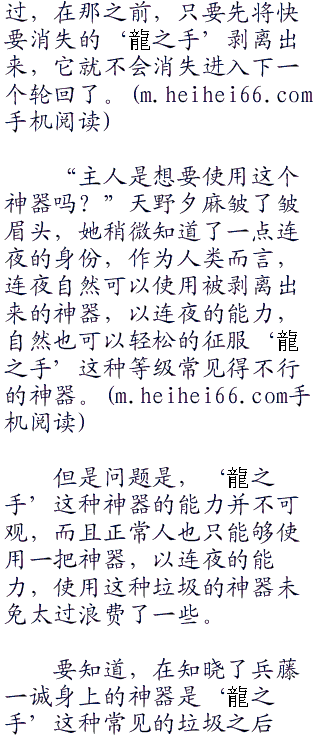 过，在那之前，只要先将快
要消失的‘龍之手’剥离出
来，它就不会消失进入下一
个轮回了。(m.heihei66.com
手机阅读)
“主人是想要使用这个
神器吗？”天野夕麻皱了皱
眉头，她稍微知道了一点连
夜的身份，作为人类而言，
连夜自然可以使用被剥离出
来的神器，以连夜的能力，
自然也可以轻松的征服‘龍
之手’这种等级常见得不行
的神器。(m.heihei66.com手
机阅读)
但是问题是，‘龍之
手’这种神器的能力并不可
观，而且正常人也只能够使
用一把神器，以连夜的能
力，使用这种垃圾的神器未
免太过浪费了一些。
要知道，在知晓了兵藤
一诚身上的神器是‘龍之
手’这种常见的垃圾之后